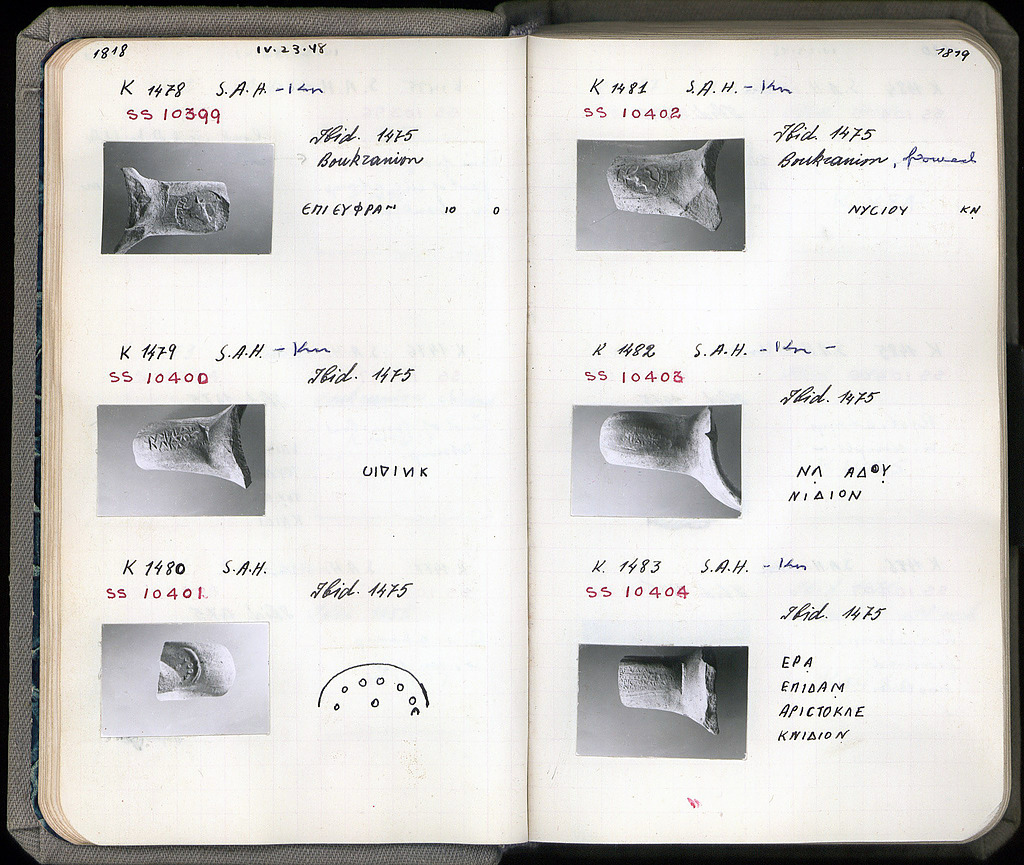 1818 IV.23.48
K 1478 S.A.H. - Kn
SS 10399
Ibid. 1475
Boukranion
ΕΠΙΕΥΦΡΑΝ ΙΟ Ο
K 1479 S.A.H. - Kn
SS 10400
Ibid. 1475
K 1480 S.A.H.
SS 10401
Ibid. 1475
1819
K 1481 S.A.H. - Kn
SS 10402
Ibid. 1475
Boukranion,
ΝΥCΙΟΥ ΚΝ
K 1482 S.A.H. - Kn -
SS 10403
Ibid. 1475
ΝΛ ΑΔΟΥ
ΝΙΔΙΟΝ
K 1483 S.A.H. - Kn
SS 10404
Ibid. 1475
ΕΡΑ
ΕΠΙΔΑΜ
ΑΡΙCΤΟΚΛΕ
ΚΝΙΔΙΟΝ